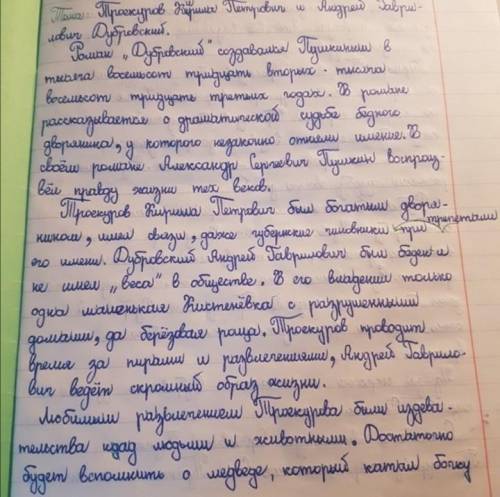 Тема: Троекуров Кирила Петрович и Андрей Гаври-
лович Дубровский.
Роман „Дубровский" создавался Пушкиным в
тысяча восемьсот тридцать вторых - тысяча
восемьсот тридцать третьих годах. В романе
рассказывается о драматической судьбе бедного
дворянина, у которого незаконно отняли имение. В
своём романе Александр Сергеевич Пушкин воспроиз-
вёл правду жизни тех веков.
Троекуров Кирила Петрович был богатым дворя-
нином, имел связи, даже губернские чиновники при трепетали
его имени. Дубровский Андрей Гаврилович был беден и
не имел „веса" в обществе. В его владении только
одна маленькая Кистенёвка с разрушенными
домами, да берёзовая роща. Троекуров проводит
время за пирами и развлечениями, Андрей Гаврило-
вич ведёт скромный образ жизни.
Любимым развлечением Троекурова были издева-
тельства над людьми и животными. Достаточно
будет вспомнить о медведе, который катал бочку